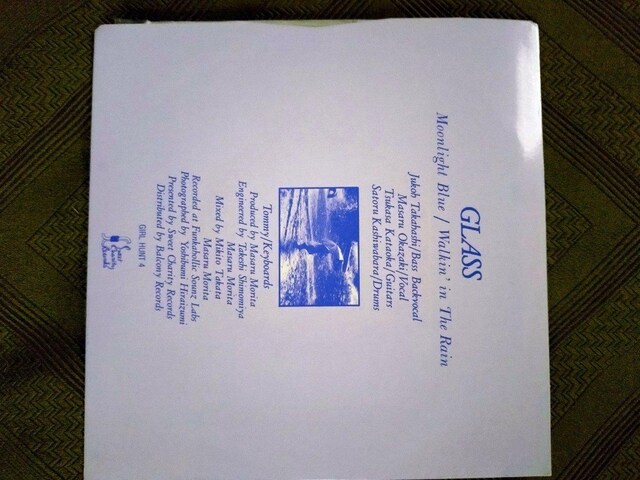 GLASS
Moonlight Blue / Walkin' in The Rain
Jukoh Takahashi/Bass Backrocal
Masaru Okazaki/Vocal
Tsukasa Kataoka/Guitars
Satoru Kashiwabara/Drums
Tommy/Keyboards
Produced by Masaru Morita
Engineered by Takeshi Shimomiya
Masaru Morita
Mixed by Mikito Takata
Masaru Morita
Recorded at Funkaholic Sounz Labs
Photographed by Yoshibumi Hiraizumi
Presented by Sweet Charity Records
Distributed by Balcony Records
Sweet Charity Records
GIRL HUNT 4